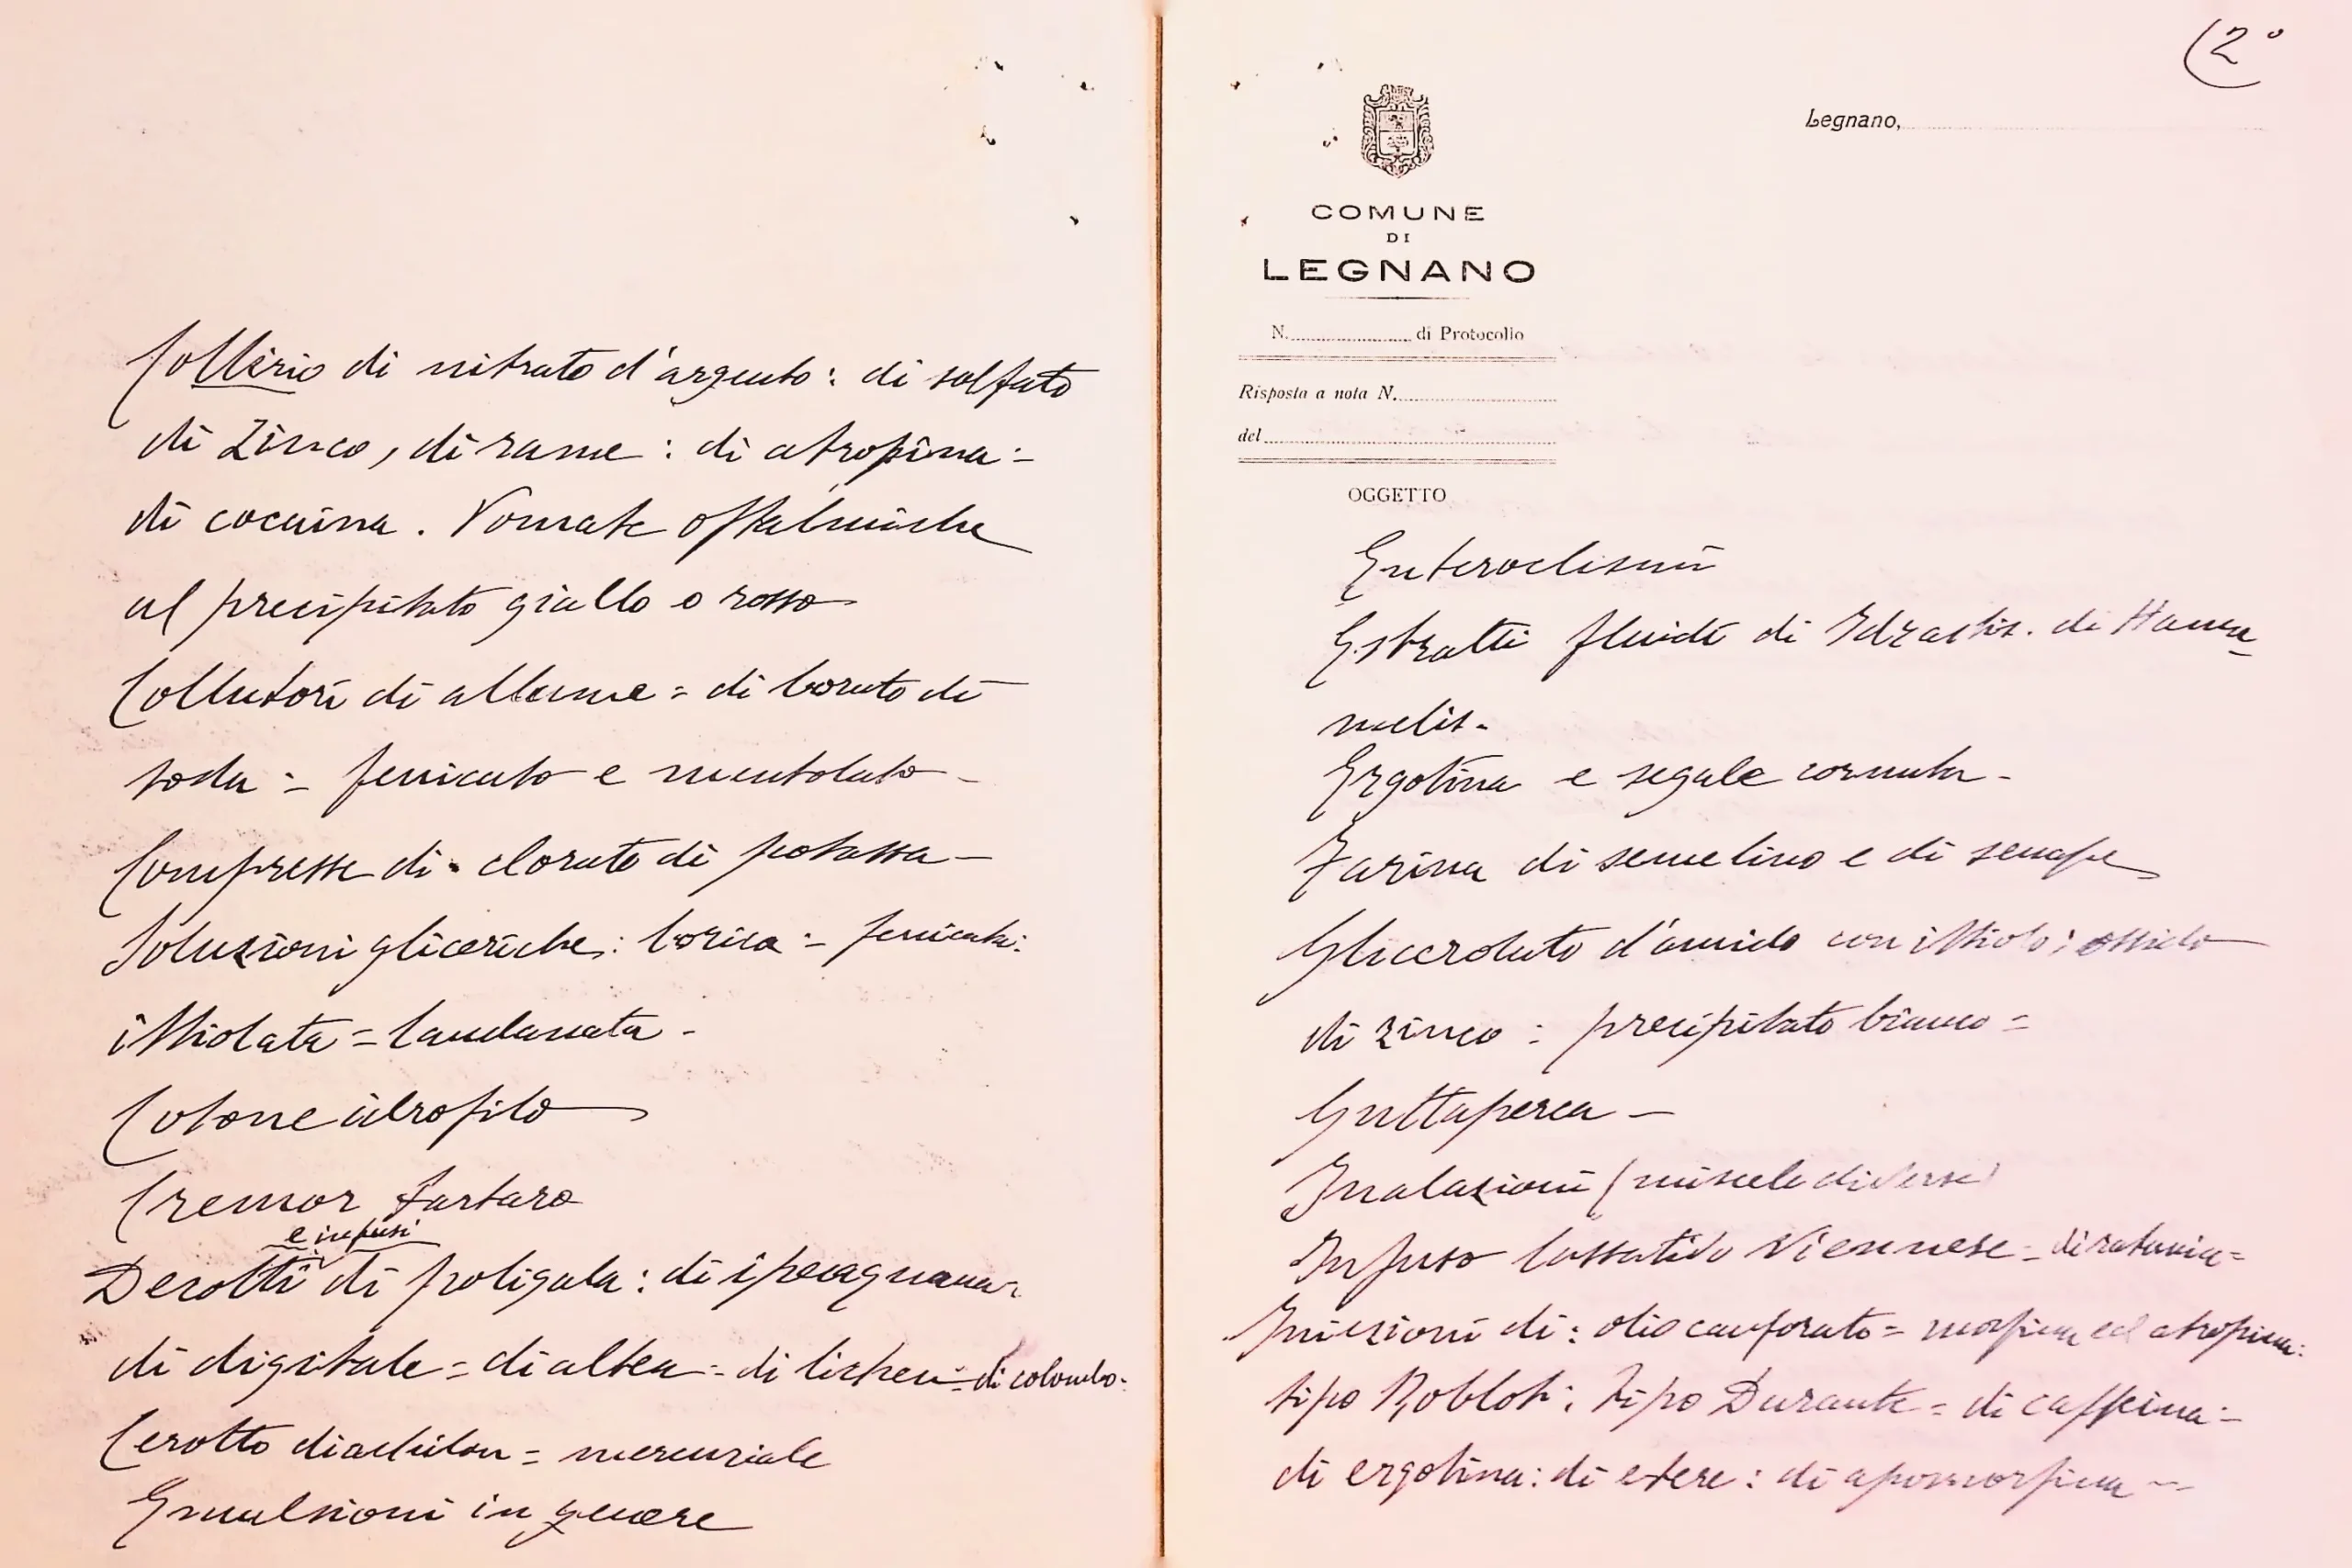 Collirio di nitrato d'argento: di solfato
di Zinco, di rame: di atropina:-
di cocaina. Pomate oftalmiche
al precipitato giallo o rosso
Collutori di allume = di borato di
soda :- fenicato e mentolato -
Compresse di clorato di potassa -
Soluzioni gliceriche: borica :- fenicata:
ittiolata = laudanata -
Cotone idrofilo
Cremor tartaro
e infusi
Decotti di poligala: di ipecaquana-
di digitale = di altea = di lichen = di colombo:
Cerotto diachilon = mercuriale
Emulsioni in genere
(2°
Legnano,
COMUNE
DI
LEGNANO
N. di Protocollo
Risposta a nota N.
del
OGGETTO
Enteroclismi
Estratti fluidi di Idrastis. di Hama
melis-
Ergotina e segale cornuta -
Farina di semelino e di senape
Glicerolato d'amido con ittiolo; ossido
di zinco : precipitato bianco =
Guttaperca -
Inalazioni (miscele diverse)
Infuso lassativo Viennese = di ratania =
Iniezioni di: olio canforato = morfina ed atropina:
tipo; tipo Durante = di caffeina:-
di ergotina: di etere: di apomorfina -